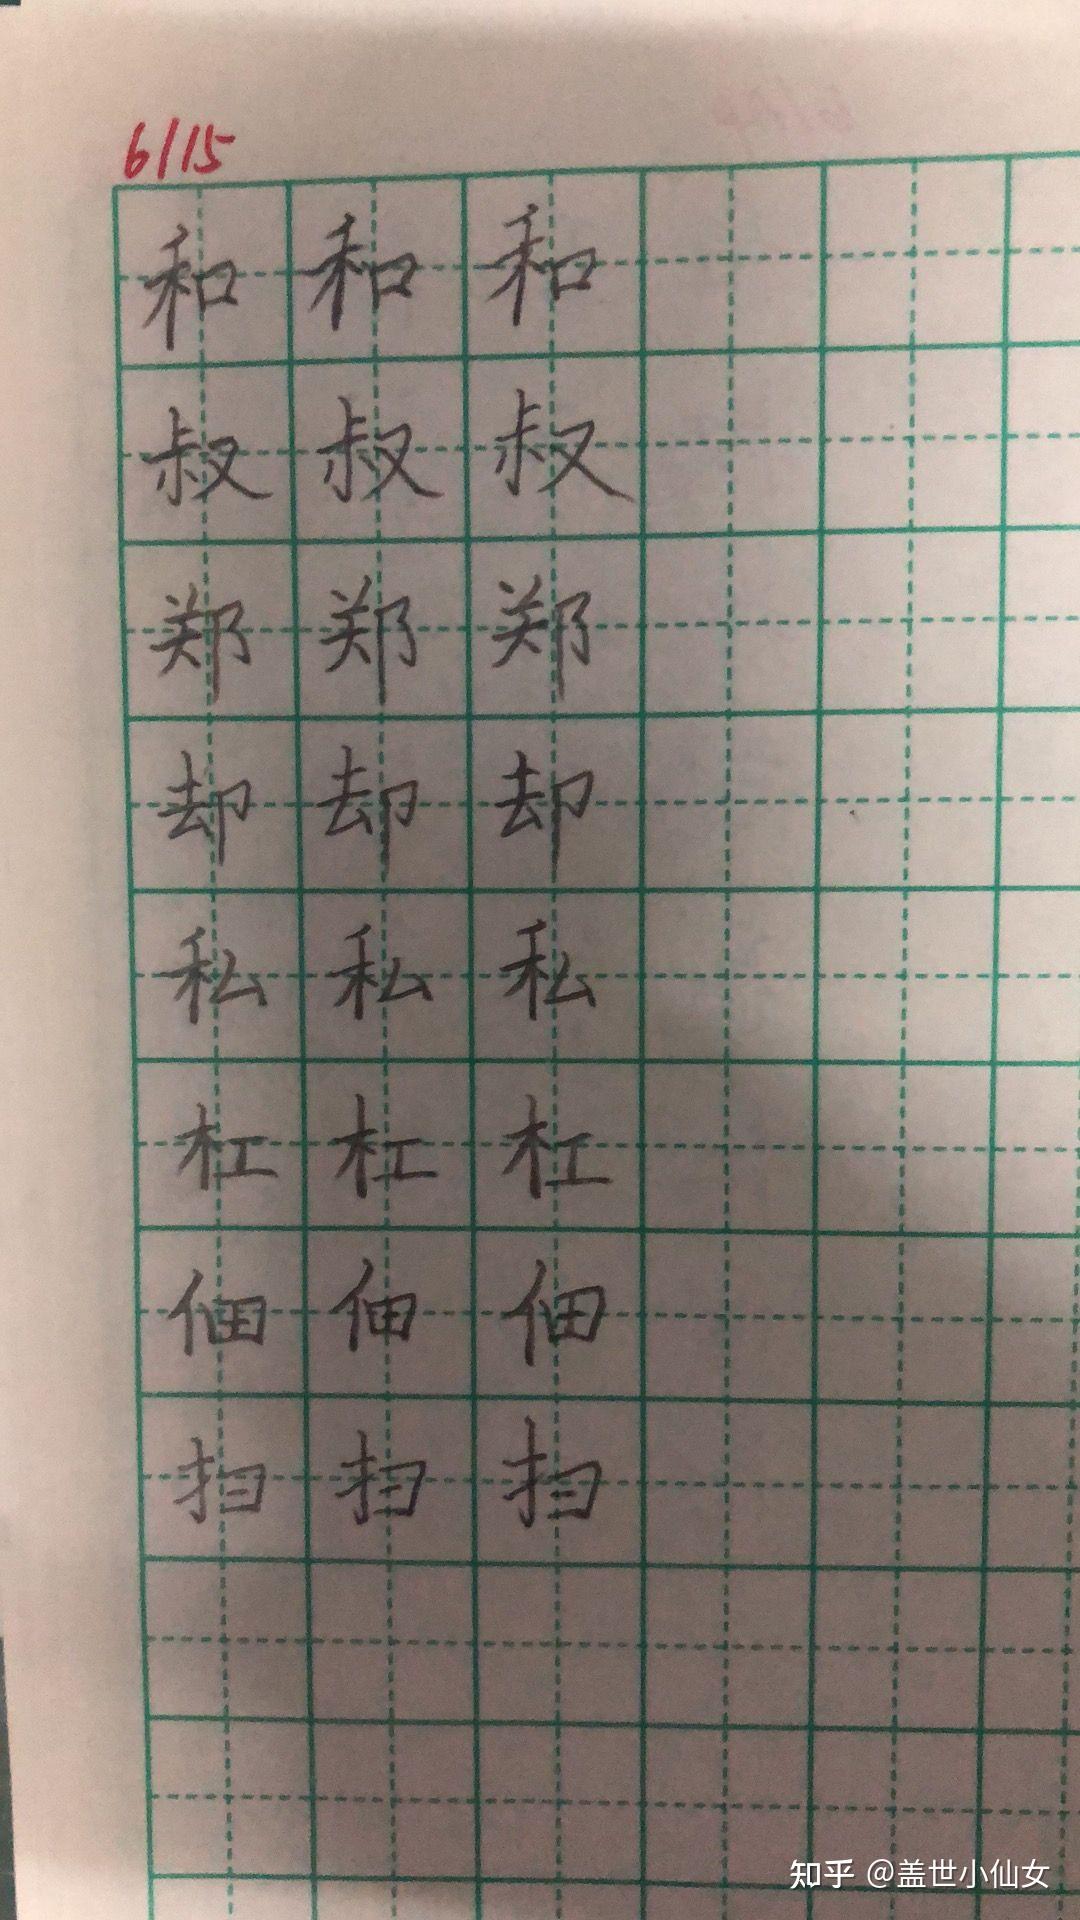 6/15
和 和 和
叔 叔 叔
郑 郑 郑
却 却 却
私 私 私
杠 杠 杠
佃 佃 佃
扫 扫 扫
知乎 @盖世小仙女